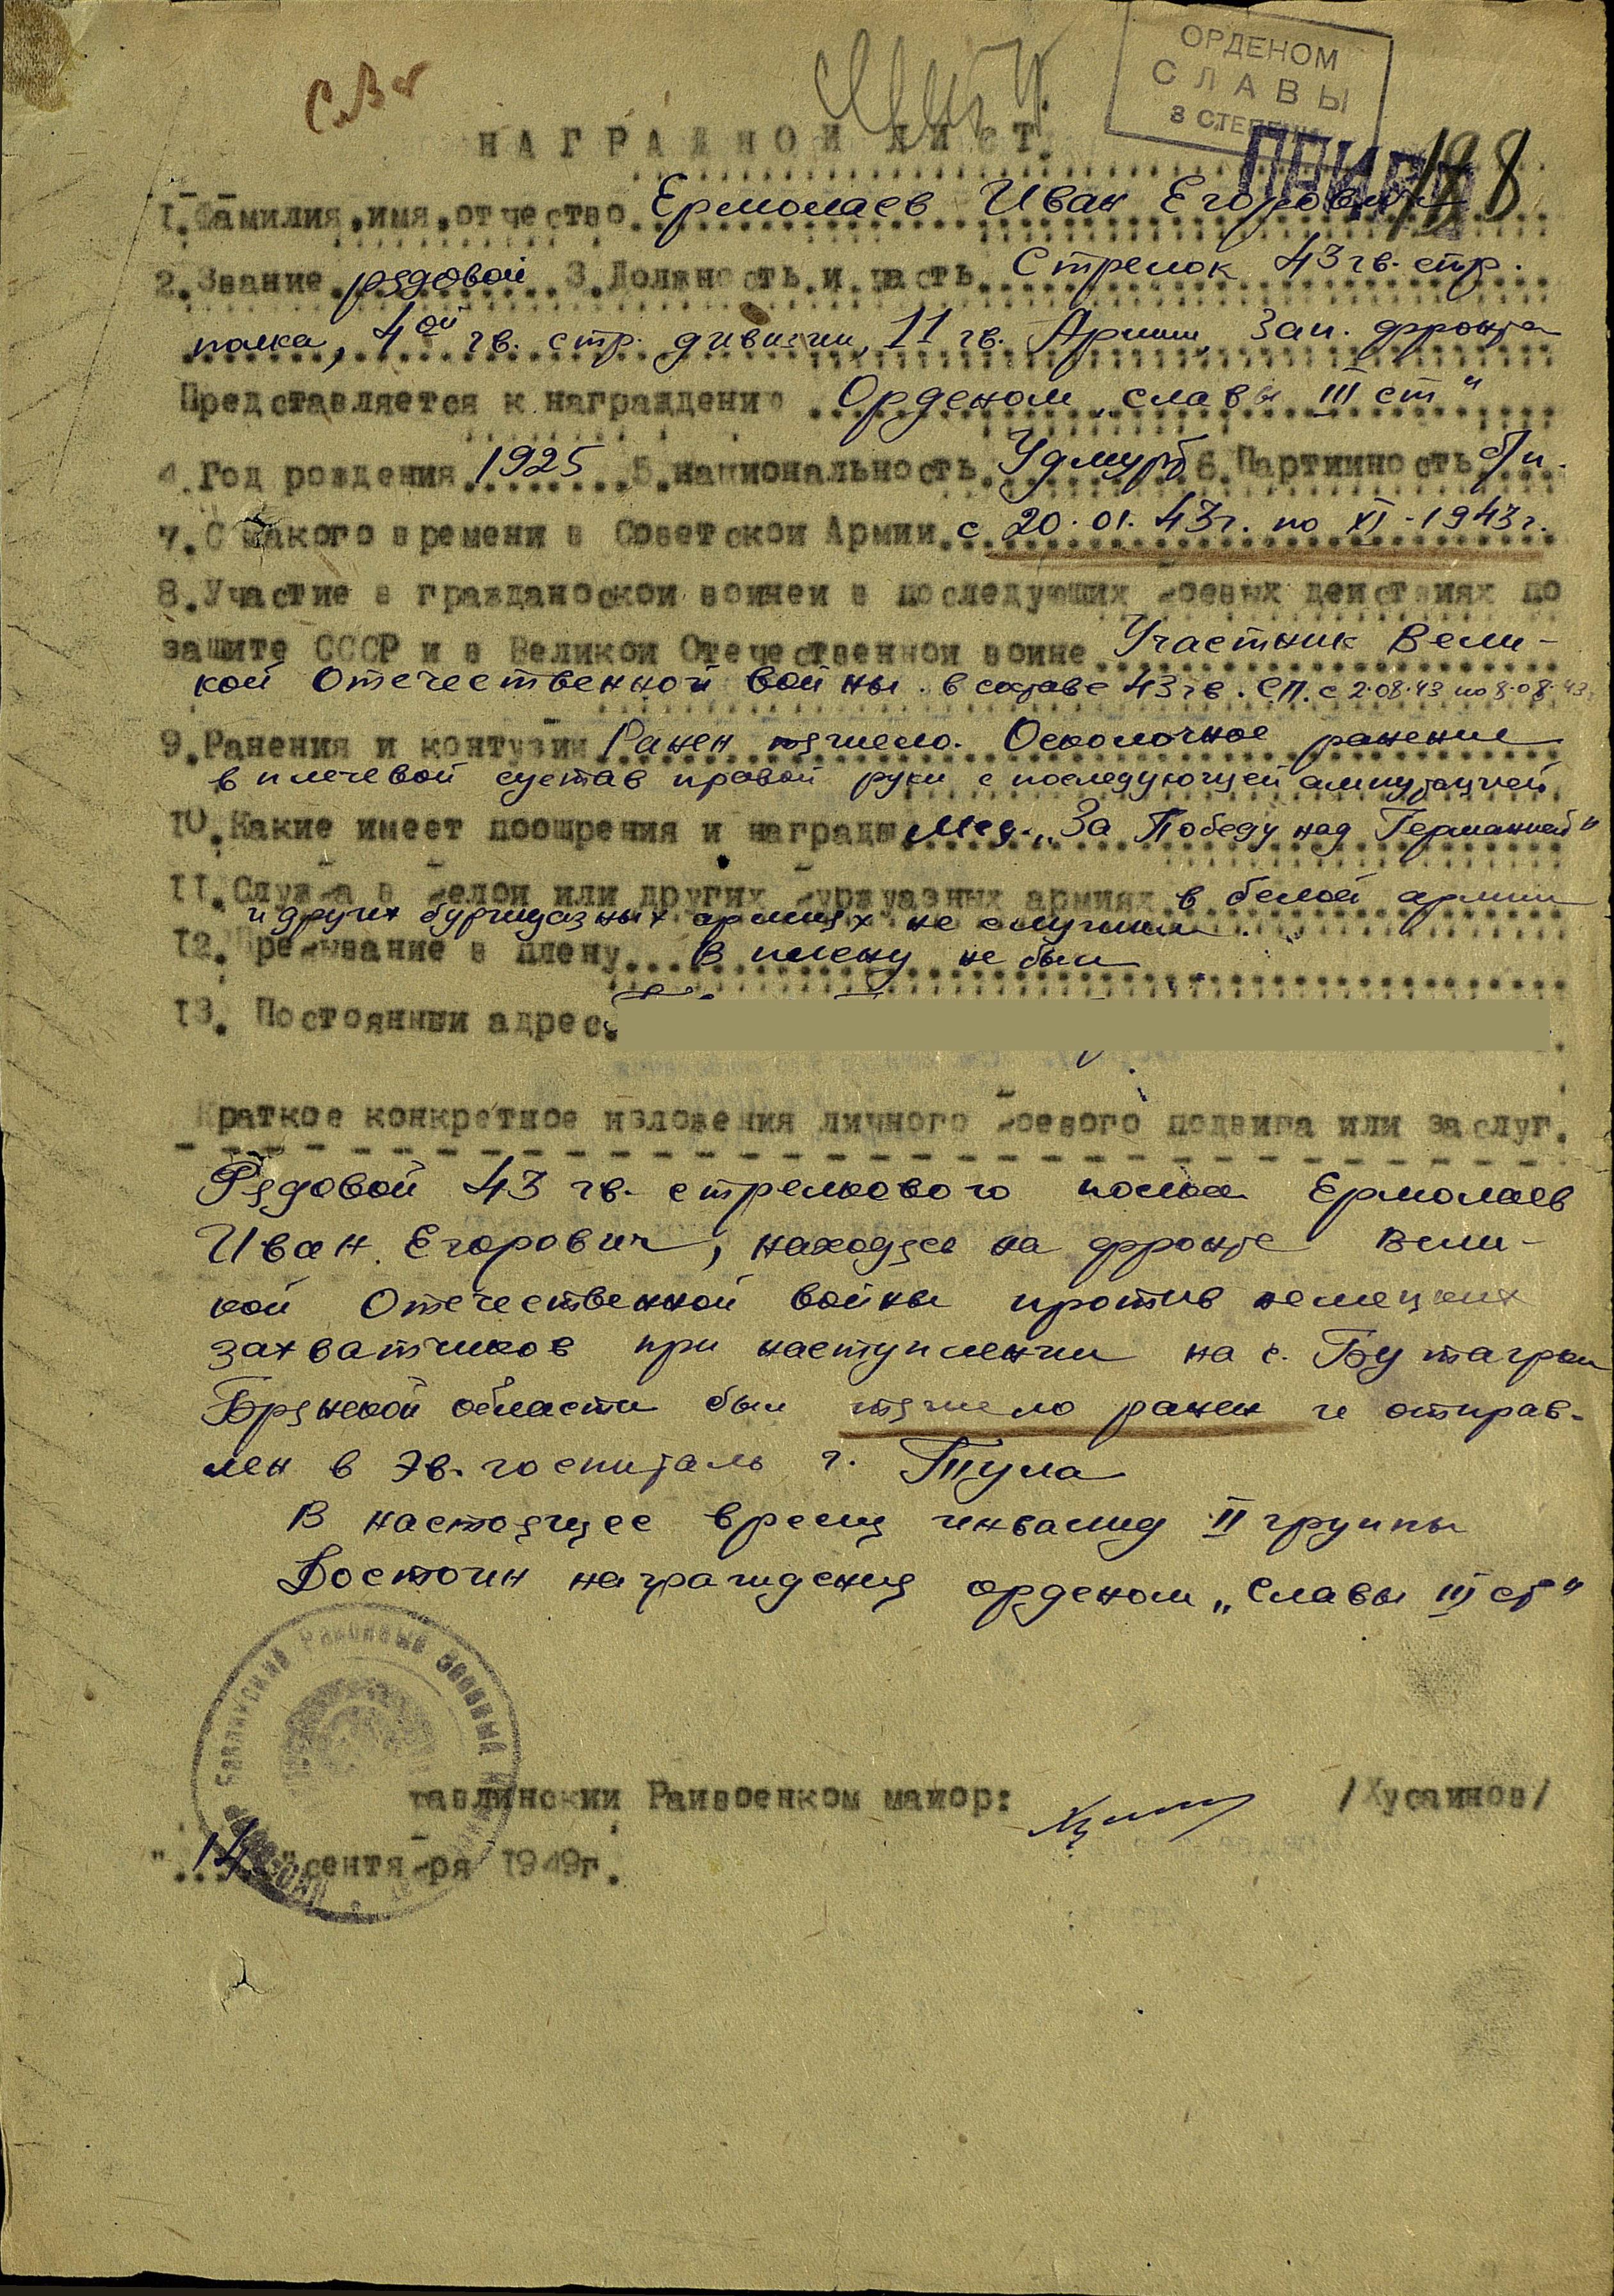 ОРДЕНОМ
СЛАВЫ
3 СТЕПЕНИ
188
НАГРАДНОЙ ЛИСТ.
1. Фамилия, имя, отчество Ермолаев Иван Егорович
2. Звание рядовой 3. Должность и часть Стрелок 43 гв. стр.
полка, 4ой гв. стр. дивизии, 11 гв. Армии, Зап. фронта
Представляется к награждению Орденом „славы III ст"
4. Год рождения 1925 5. национальность Удмурт 6. Партийность б/п.
7. С какого времени в Советской Армии с 20.01.43г. по XI-1943г.
8. Участие в гражданоской воинеи в последующих боевых действиях по
защите СССР и в Великой Отечественной воине Участник Вели-
кой Отечественной войны. в составе 43 гв. СП. с 2.08.43 по 8.08.43
9. Ранения и контузии Ранен тяжело. Осколочное ранение
в плечевой сустав правой руки с последующей ампутацией
10. Какие имеет поощрения и награды Мед. „За Победу над Германией"
11. Служба в белой или других буржуазных армиях в белой армии
и других буржуазных армиях не служил.
12. Пребывание в плену. В плену не был
13. Постоянный адрес.
Краткое конкретное изложения личного боевого подвига или заслуг.
Рядовой 43 гв. стрелкового полка Ермолаев
Иван Егорович, находясь на фронте Вели-
кой Отечественной войны против немецких
захватчиков при наступлении на с.
Брянской области был тяжело ранен и отправ-
лен в Эв. госпиталь г. Тула
В настоящее время инвалид II группы
Достоин награждения орденом „Славы III ст"
Бавлинский Районный Военный
Бавлинский Райвоенком майор: /Хусаинов/
"14" сентября 1949г.